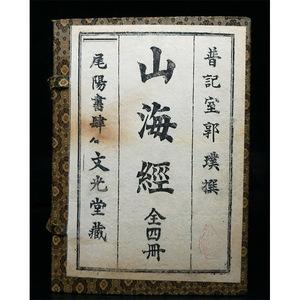 普記室郭璞撰
山海經 全四冊
尾陽書肆 文光堂藏